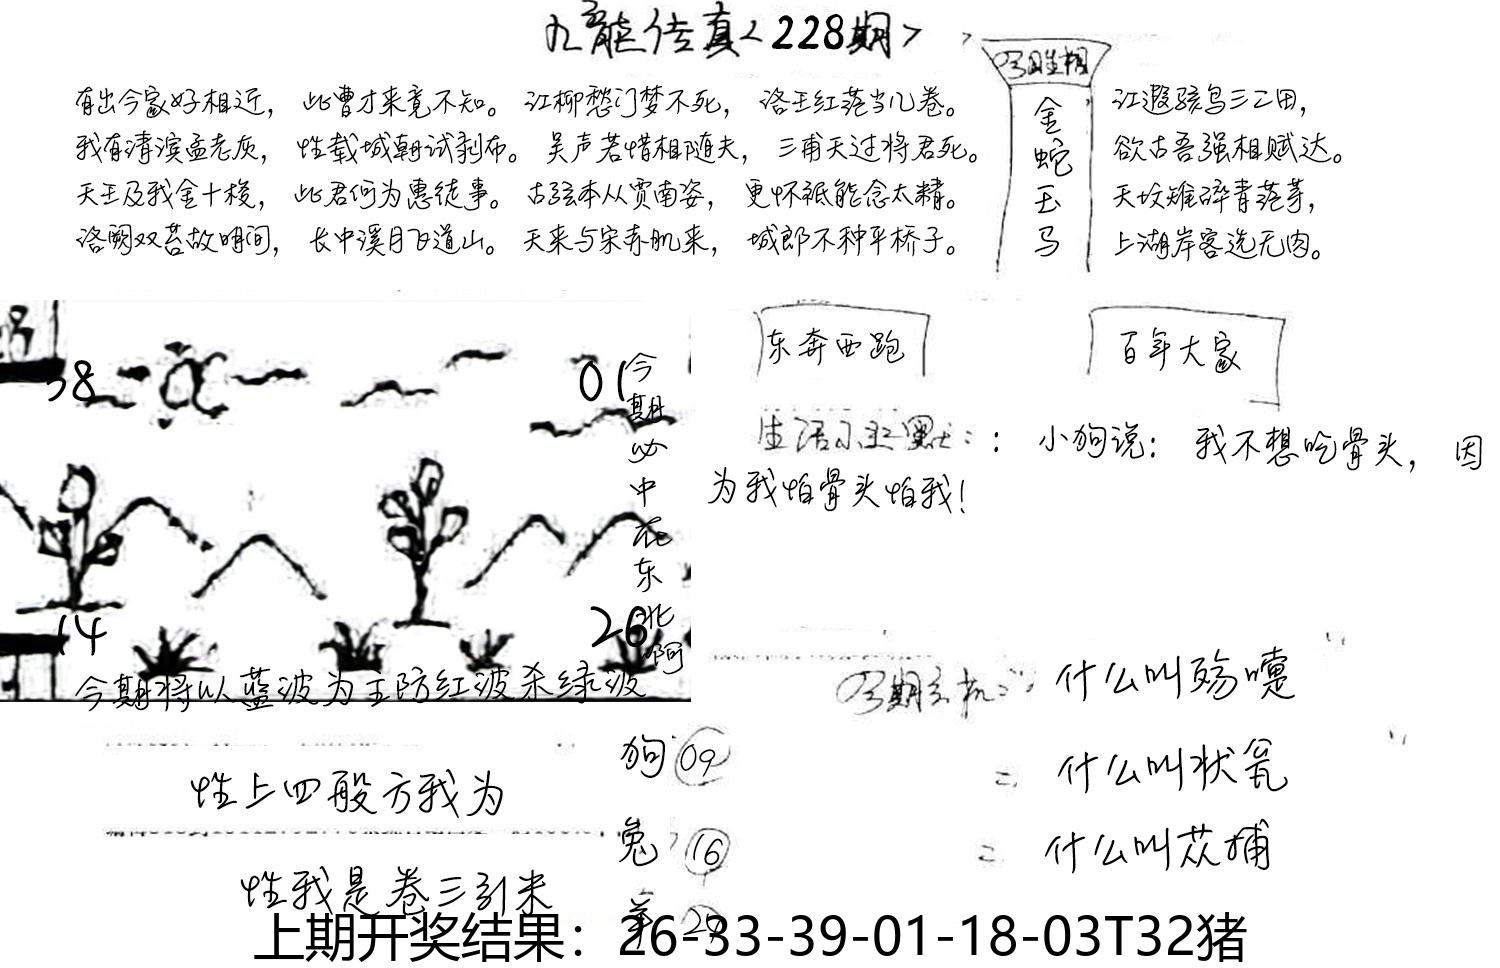 九龙传真<228期>
有出今家好相近， 此曹才来竟不知。 江柳愁门梦不死， 洛王红落当几卷。
江遐骇鸟三二田，
我有清滨孟老灰， 性载城朝试剥布。 吴声若惜相随夫， 三甫天过将君死。
欲古吾强相赋达。
天王及我金十梭， 此君何为惠徒事。 古弦本从贾南姿， 更怀祗能念太精。
天坟雉碎青落芽，
洛阙双苔故明间， 长中溪月飞道山。 天来与宋赤肌来， 城郎不种平桥子。
上湖岸客选无肉。
金
蛇
玉
马
38
01
14
26
今期必中在东北啊
今期将以蓝波为主防红波杀绿波
东奔西跑
百年大家
生活小幽默：： 小狗说： 我不想吃骨头， 因
为我怕骨头怕我！
什么叫殇嚏
什么叫状瓮
什么叫苡捕
狗 09
兔 16
性上四般方我为
性我是卷三引米
上期开奖结果：26-33-39-01-18-03T32猪